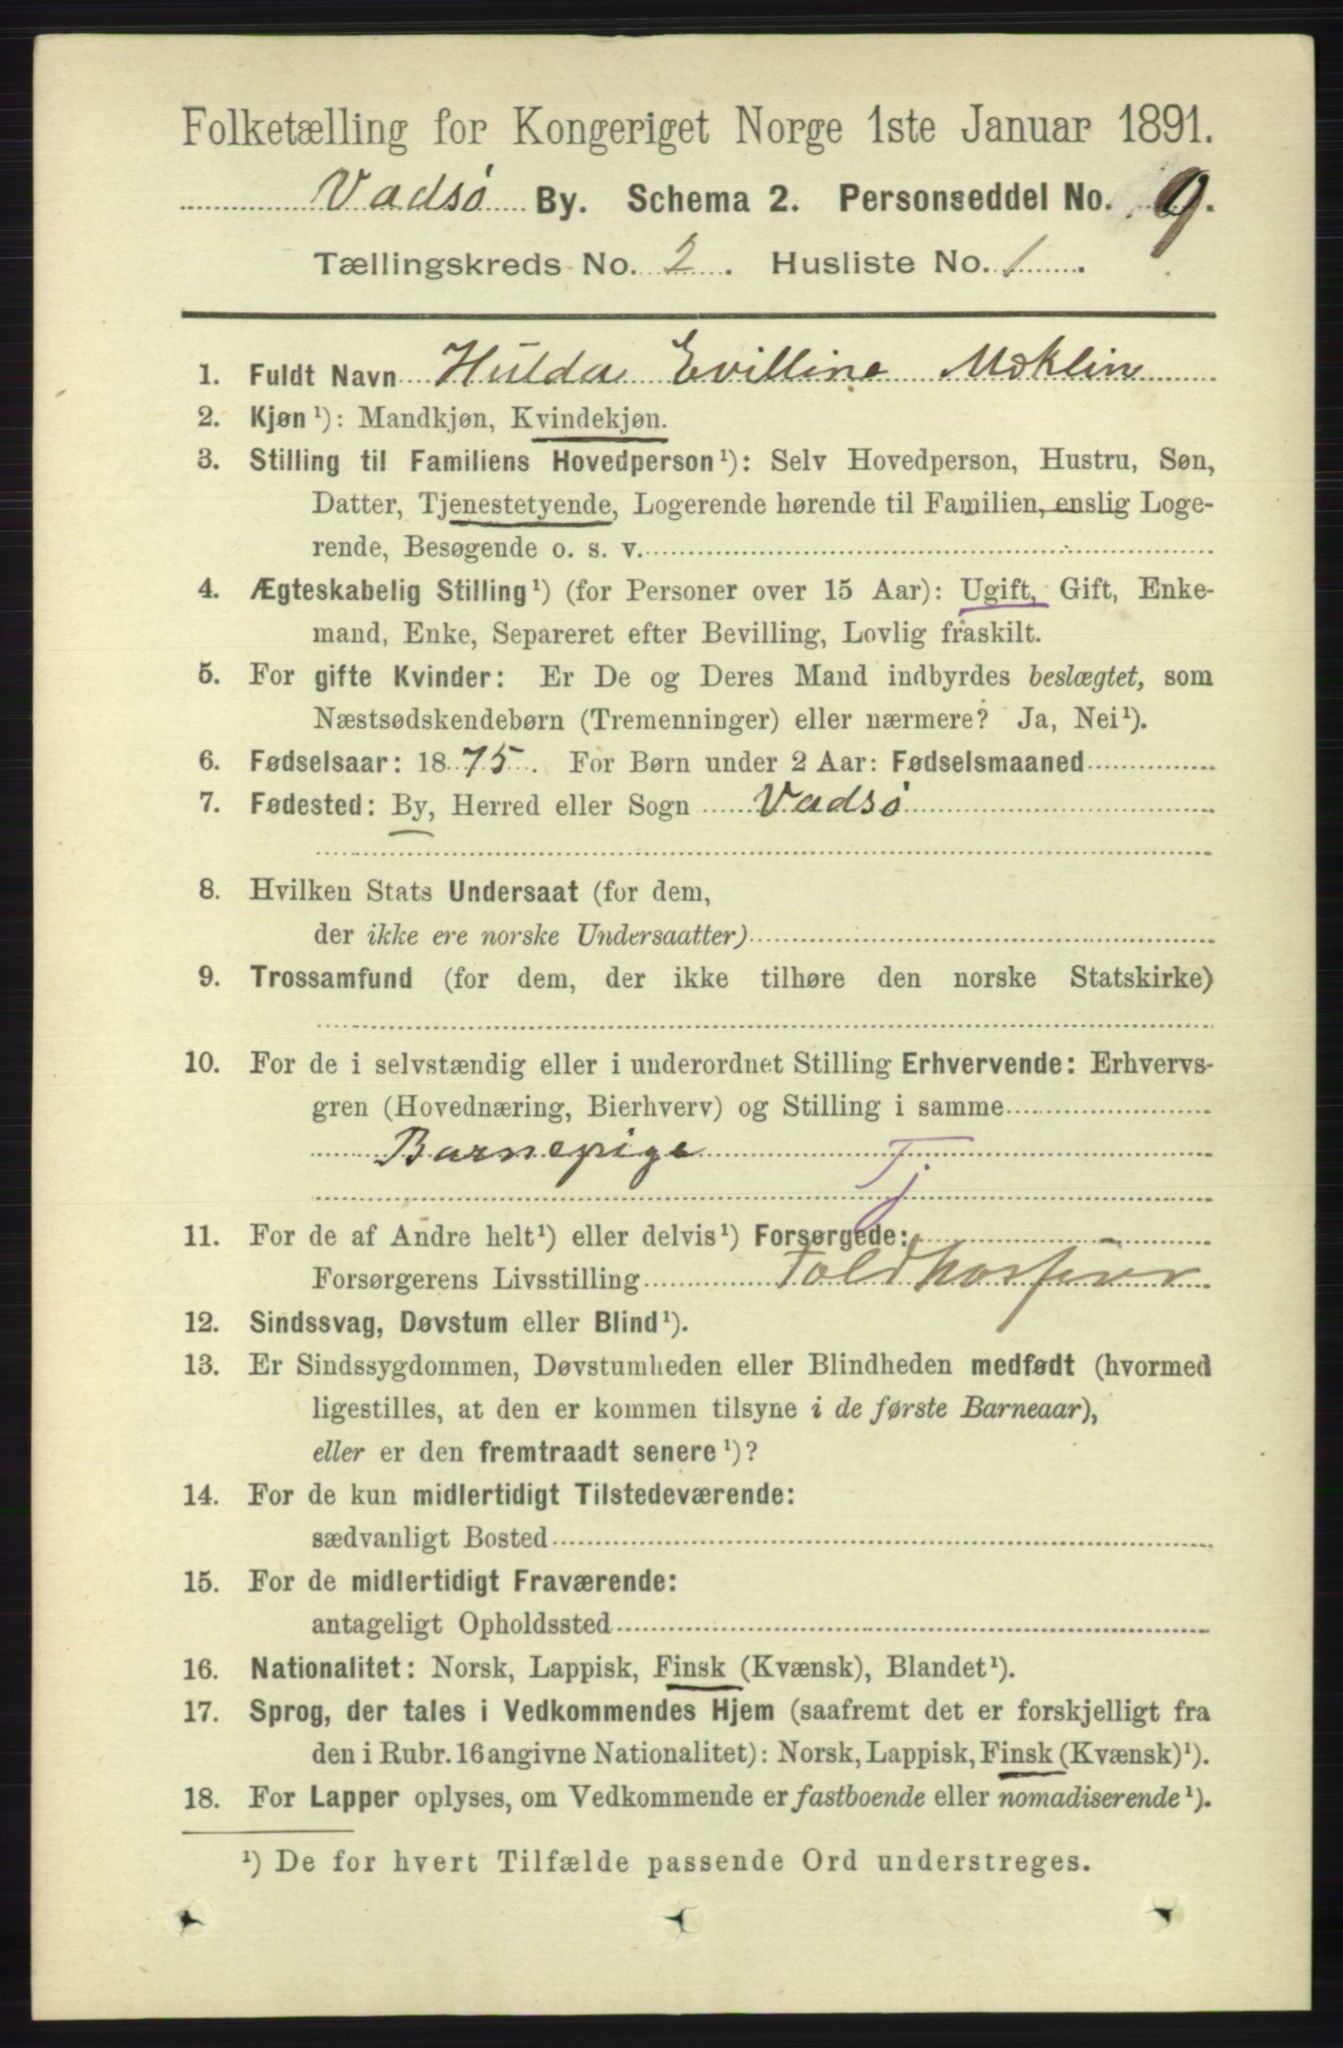 Folketælling for Kongeriget Norge 1ste Januar 1891.
Vadsø By. Schema 2. Personseddel No. 9.
Tællingskreds No. 2. Husliste No. 1.
1. Fuldt Navn Hulda Evilline Moklin
2. Kjøn¹): Mandkjøn, Kvindekjøn.
3. Stilling til Familiens Hovedperson¹): Selv Hovedperson, Hustru, Søn,
Datter, Tjenestetyende, Logerende hørende til Familien, enslig Loge-
rende, Besøgende o. s. v.
4. Ægteskabelig Stilling¹) (for Personer over 15 Aar): Ugift, Gift, Enke-
mand, Enke, Separeret efter Bevilling, Lovlig fraskilt.
5. For gifte Kvinder: Er De og Deres Mand indbyrdes beslægtet, som
Næstsødskendebørn (Tremenninger) eller nærmere? Ja, Nei¹).
6. Fødselsaar: 1875. For Børn under 2 Aar: Fødselsmaaned
7. Fødested: By, Herred eller Sogn Vadsø
8. Hvilken Stats Undersaat (for dem,
der ikke ere norske Undersaatter)
9. Trossamfund (for dem, der ikke tilhøre den norske Statskirke)
10. For de i selvstændig eller i underordnet Stilling Erhvervende: Erhvervs-
gren (Hovednæring, Bierhverv) og Stilling i samme
Barnepige
Tj
11. For de af Andre helt¹) eller delvis¹) Forsørgede:
Forsørgerens Livsstilling Toldkasserer
12. Sindssvag, Døvstum eller Blind¹).
13. Er Sindssygdommen, Døvstumheden eller Blindheden medfødt (hvormed
ligestilles, at den er kommen tilsyne i de første Barneaar),
eller er den fremtraadt senere¹)?
14. For de kun midlertidigt Tilstedeværende:
sædvanligt Bosted
15. For de midlertidigt Fraværende:
antageligt Opholdssted
16. Nationalitet: Norsk, Lappisk, Finsk (Kvænsk), Blandet¹).
17. Sprog, der tales i Vedkommendes Hjem (saafremt det er forskjelligt fra
den i Rubr. 16 angivne Nationalitet): Norsk, Lappisk, Finsk (Kvænsk)¹).
18. For Lapper oplyses, om Vedkommende er fastboende eller nomadiserende¹).
¹) De for hvert Tilfælde passende Ord understreges.